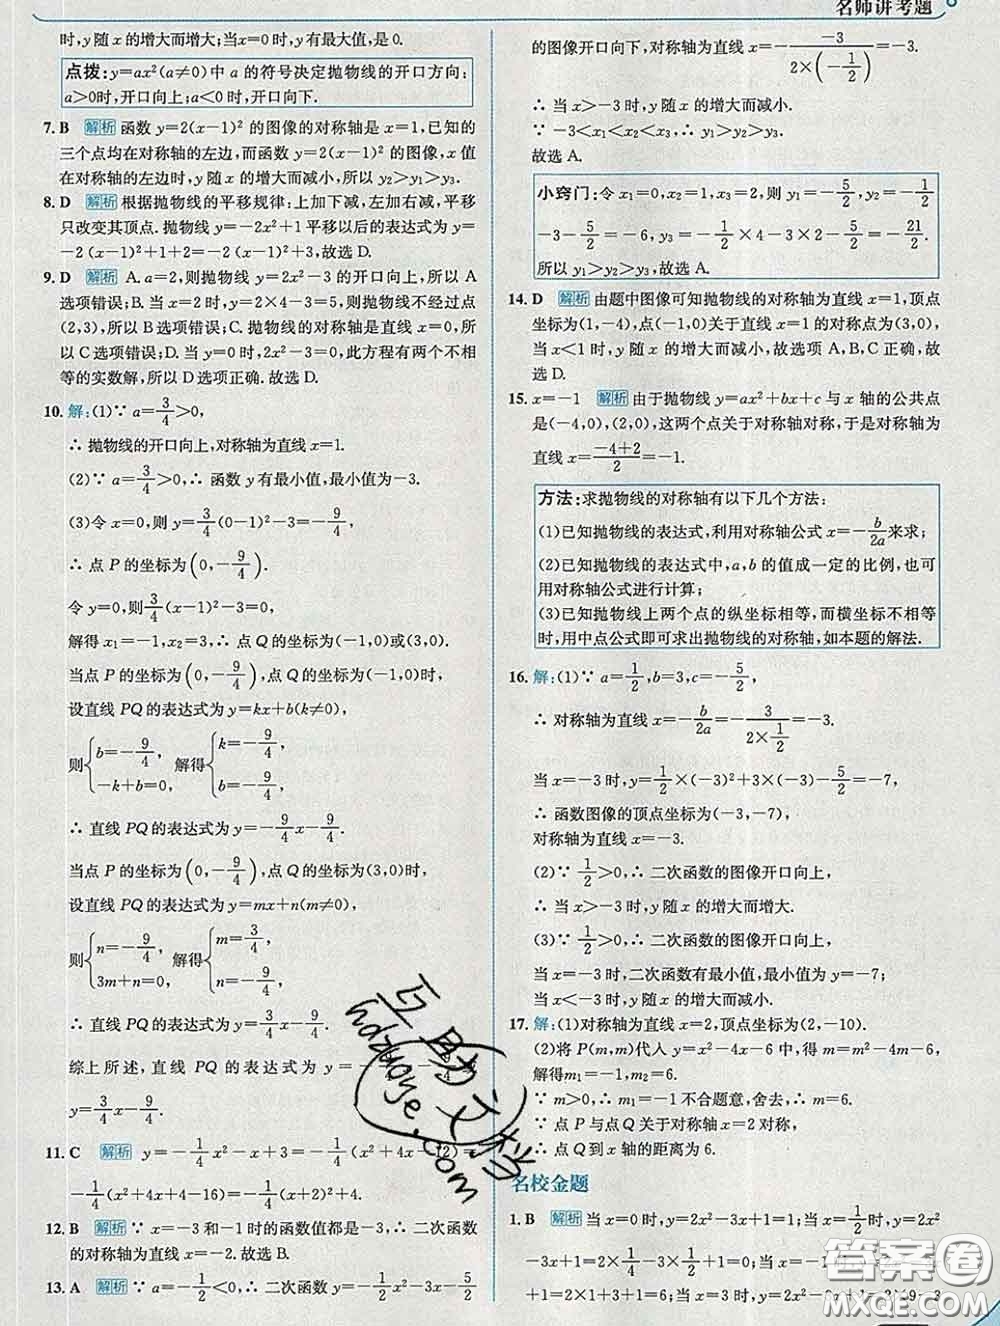 名师讲考题
时,y随x的增大而增大;当x=0时,y有最大值,是0.
点拨:y=ax²(a≠0)中a的符号决定抛物线的开口方向;
a>0时,开口向上;a<0时,开口向下.
7. B 解析 函数y=2(x-1)²的图像的对称轴是x=1,已知的
三个点均在对称轴的左边,而函数y=2(x-1)²的图像,x值
在对称轴的左边时,y随x的增大而减小,所以y₂>y₁>y₃.
8. D 解析 根据抛物线的平移规律:上加下减,左加右减,平移
只改变其顶点.抛物线y=-2x²+1平移以后的表达式为y=
-2(x-1)²+1+2=-2(x-1)²+3,故选D.
9. D 解析 A.a=2,则抛物线y=2x²-3的开口向上,所以A
选项错误;B.当x=2时,y=2×4-3=5,则抛物线不经过点
(2,3),所以B选项错误;C.抛物线的对称轴是直线x=0,所
以C选项错误;D.当y=0时,2x²-3=0,此方程有两个不相
等的实数解,所以D选项正确.故选D.
10. 解:(1)∵a=3/4>0,
∴抛物线的开口向上,对称轴为直线x=1.
(2)∵a=3/4>0,∴函数y有最小值,最小值为-3.
(3)令x=0,则y=3/4(0-1)²-3=-9/4,
∴点P的坐标为(0,-9/4).
令y=0,则3/4(x-1)²-3=0,
解得x₁=-1,x₂=3,∴点Q的坐标为(-1,0)或(3,0).
当点P的坐标为(0,-9/4),点Q的坐标为(-1,0)时,
设直线PQ的表达式为y=kx+b(k≠0),
则{b=-9/4, -k+b=0, 解得{k=-9/4, b=-9/4.
∴直线PQ的表达式为y=-9/4x-9/4.
当点P的坐标为(0,-9/4),点Q的坐标为(3,0)时,
设直线PQ的表达式为y=mx+n(m≠0),
则{n=-9/4, 3m+n=0, 解得{m=3/4, n=-9/4.
∴直线PQ的表达式为y=3/4x-9/4.
综上所述,直线PQ的表达式为y=
y=3/4x-9/4.
11. C 解析 y=-1/4x²-x+3=-1/4(x²+4x-12)=
-1/4(x²+4x+4-16)=-1/4(x+2)²+4.
12. B 解析 ∵x=-3和-1时的函数值都是-3,∴二次函数
的对称轴为直线x=-2.故选B.
13. A 解析 ∵a=-1/2<0,∴二次函数y=-1/2x²-3x-5/2
的图像开口向下,对称轴为直线x=-(-3)/(2×(-1/2))=-3.
∴当x>-3时,y随x的增大而减小.
∵-3<x₁<x₂<x₃,∴y₁>y₂>y₃.
故选A.
小窍门:令x₁=0,x₂=1,x₃=2,则y₁=-5/2,y₂=-1/2
-3-5/2=-6,y₃=-1/2×4-3×2-5/2=-21/2.
所以y₁>y₂>y₃.故选A.
14. D 解析 由题中图像可知抛物线的对称轴为直线x=1,顶点
坐标为(1,-4),点(-1,0)关于直线x=1的对称点为(3,0),
当x<1时,y随x的增大而减小,故选项A,B,C正确,故
选D.
15. x=-1 解析 由于抛物线y=ax²+bx+c与x轴的公共点
是(-4,0),(2,0),这两个点关于对称轴对称,于是对称轴为
直线x=(-4+2)/2=-1.
方法:求抛物线的对称轴有以下几个方法:
(1)已知抛物线的表达式,利用对称轴公式x=-b/2a来求;
(2)已知抛物线的表达式中,a,b的值成一定的比例,也可
用对称轴公式进行计算;
(3)已知抛物线上两个点的纵坐标相等,而横坐标不相等
时,用中点公式即可求出抛物线的对称轴,如本题的解法.
16. 解:(1)∵a=1/2,b=3,c=-5/2,
∴对称轴为直线x=-b/2a=-3/(2×1/2)=-3.
当x=-3时,y=1/2×(-3)²+3×(-3)-5/2=-7,
∴函数图像的顶点坐标为(-3,-7),
对称轴为直线x=-3.
(2)∵1/2>0,∴二次函数的图像开口向上,
∴当x>-3时,y随x的增大而增大.
(3)∵1/2>0,∴二次函数的图像开口向上,
当x=-3时,二次函数有最小值,最小值y=-7;
当x<-3时,y随x的增大而减小.
17. 解:(1)对称轴为直线x=2,顶点坐标为(2,-10).
(2)将P(m,m)代入y=x²-4x-6中,得m=m²-4m-6,
解得m₁=-1,m₂=6.
∵m>0,∴m₁=-1不合题意,舍去,∴m=6.
∵点P与点Q关于对称轴x=2对称,
∴点Q到x轴的距离为6.
名校金题
1. B 解析 当x=0时,y=2x²-3x+1=1;当x=1/2时,y=2x²
-3x+1=2×1/4-3×1/2+1=0;当x=
+1=2×1+3+1=6;当x=3时,y=2x²
互助文档
hdzuoye.com
答案卷
MXQE.COM